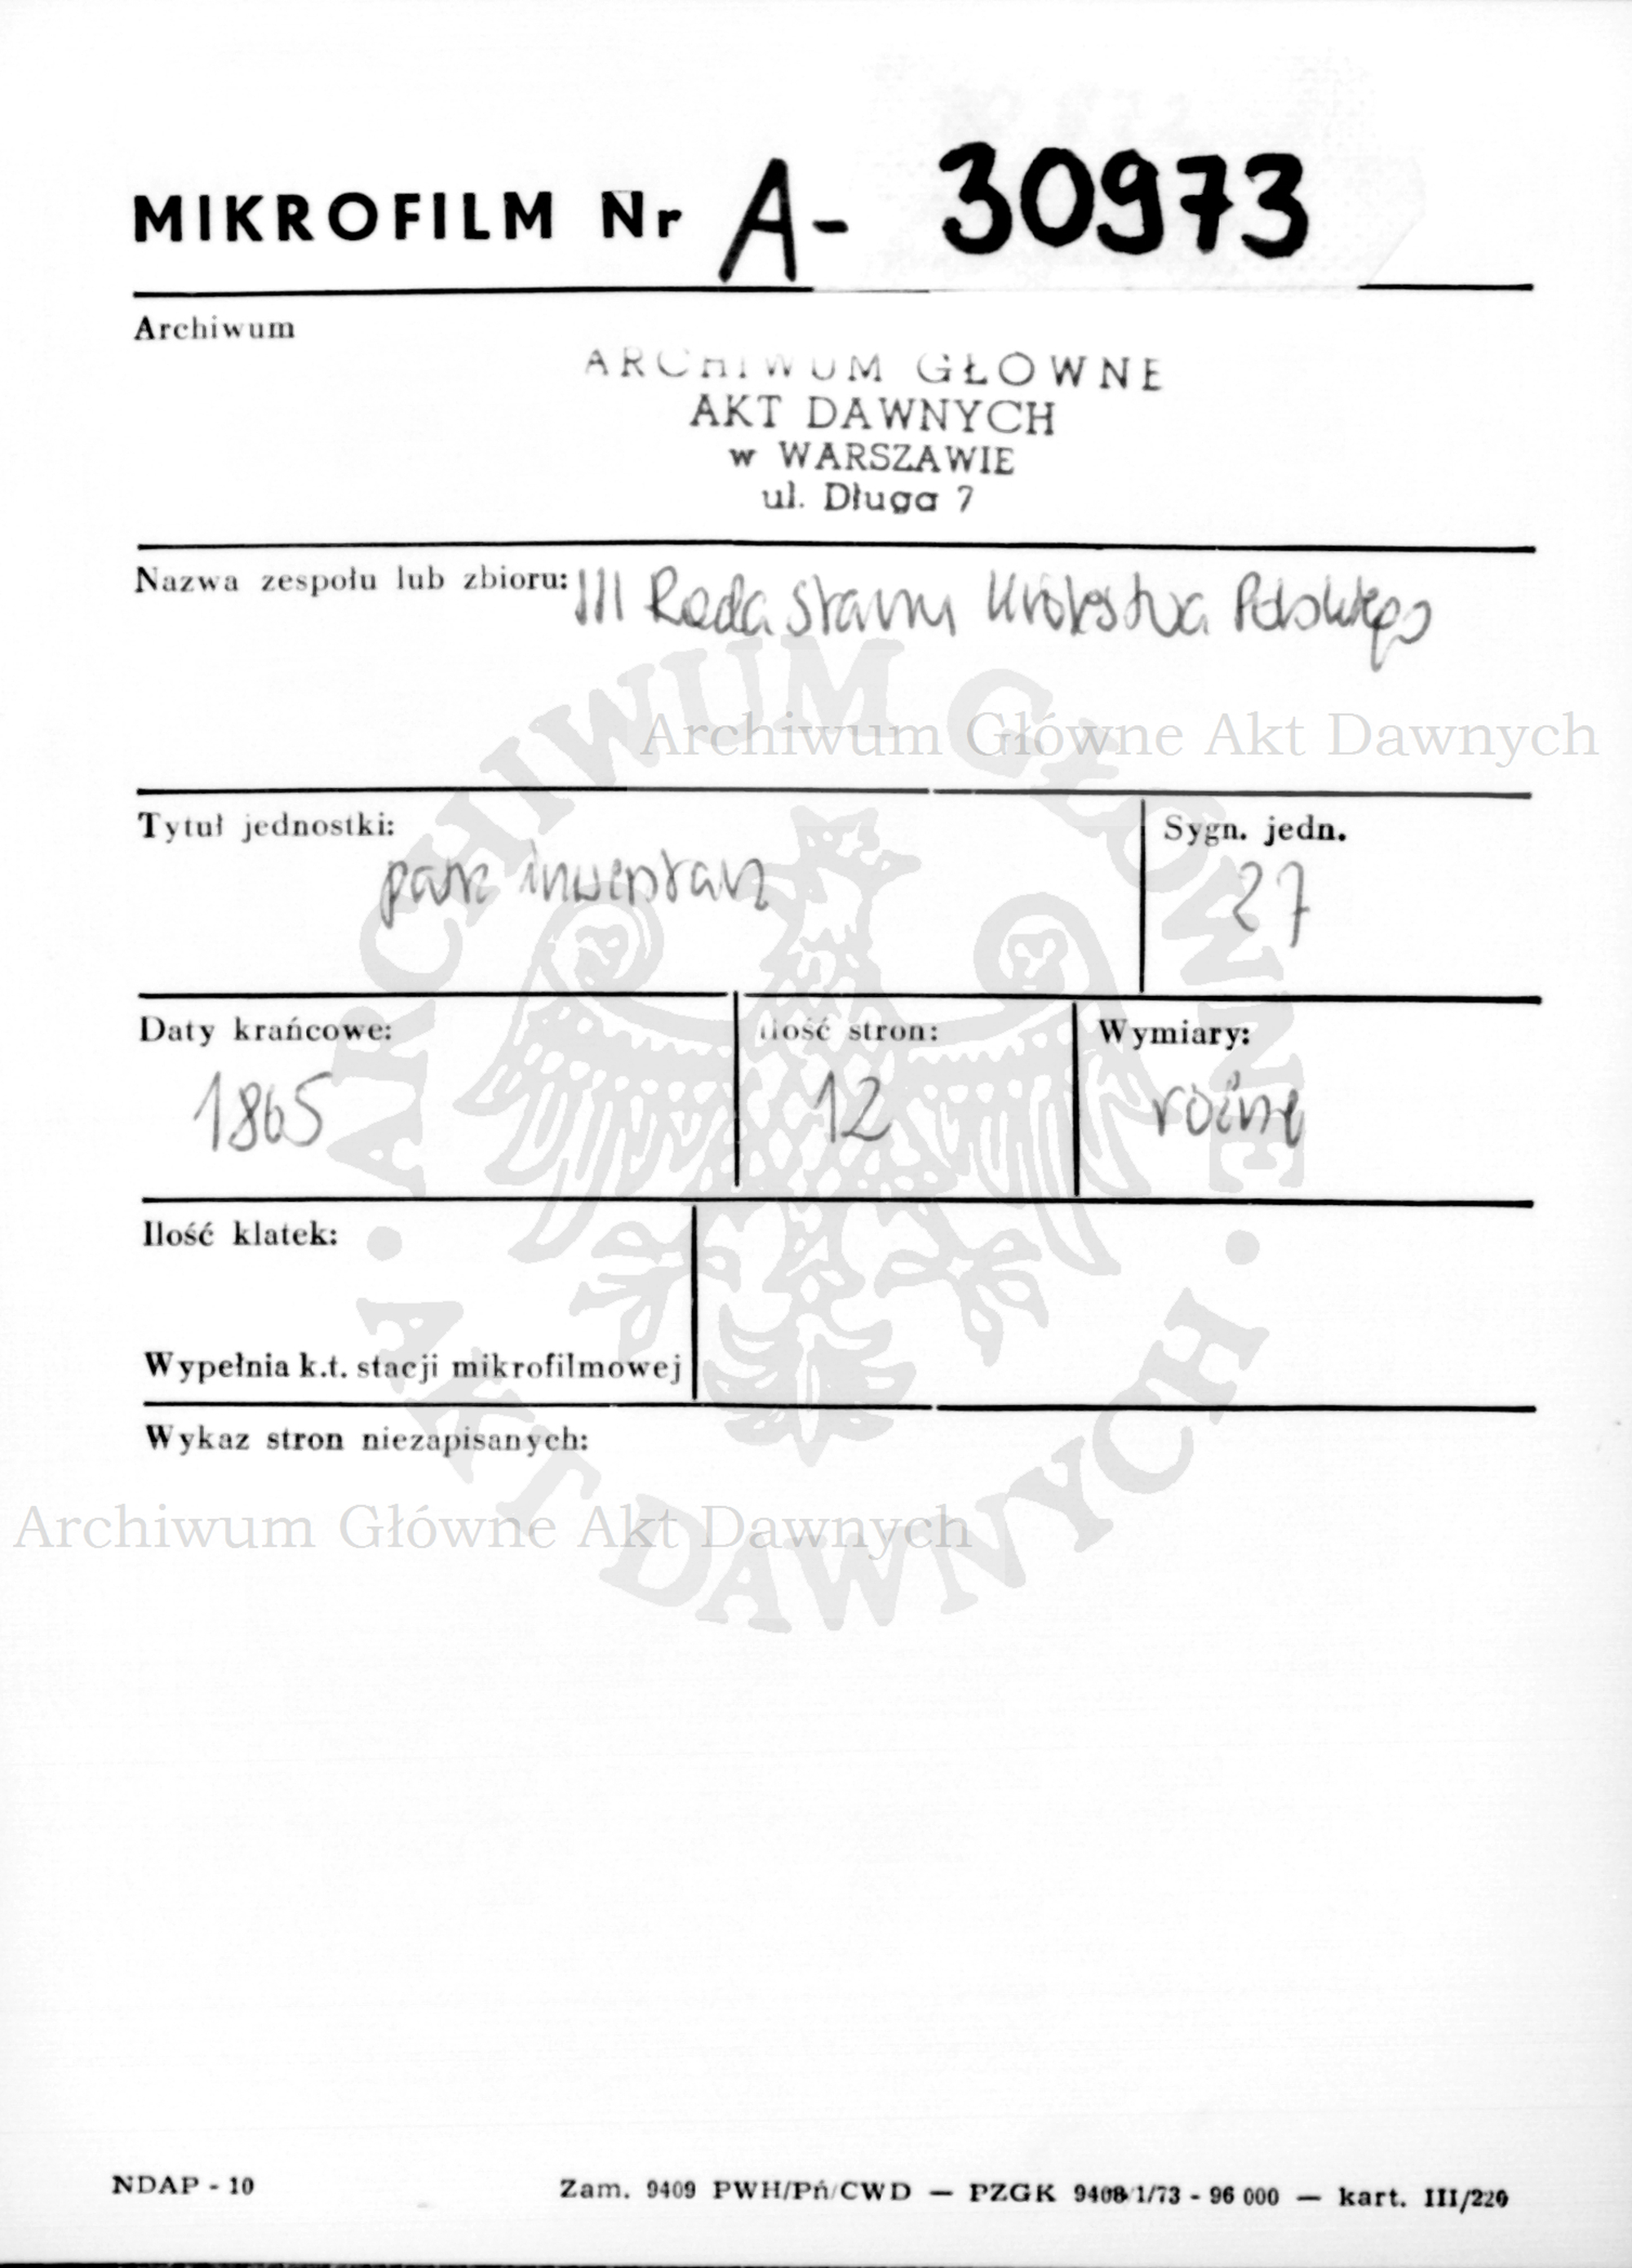 MIKROFILM Nr A- 30973
Archiwum
ARCHIWUM GŁOWNE
AKT DAWNYCH
w WARSZAWIE
ul. Długa 7
Nazwa zespołu lub zbioru: III Rada Stanu Królestwa Polskiego
Archiwum Główne Akt Dawnych
Tytuł jednostki:
patrz inwentarz
Sygn. jedn.
27
Daty krańcowe:
1865
Ilość stron:
12
Wymiary:
różne
Ilość klatek:
Wypełnia k.t. stacji mikrofilmowej
Wykaz stron niezapisanych:
Archiwum Główne Akt Dawnych
ARCHIWUM GŁÓWNE
AKT DAWNYCH
NDAP - 10
Zam. 9409 PWH/Pń/CWD — PZGK 9408/1/73 - 96 000 — kart. III/220